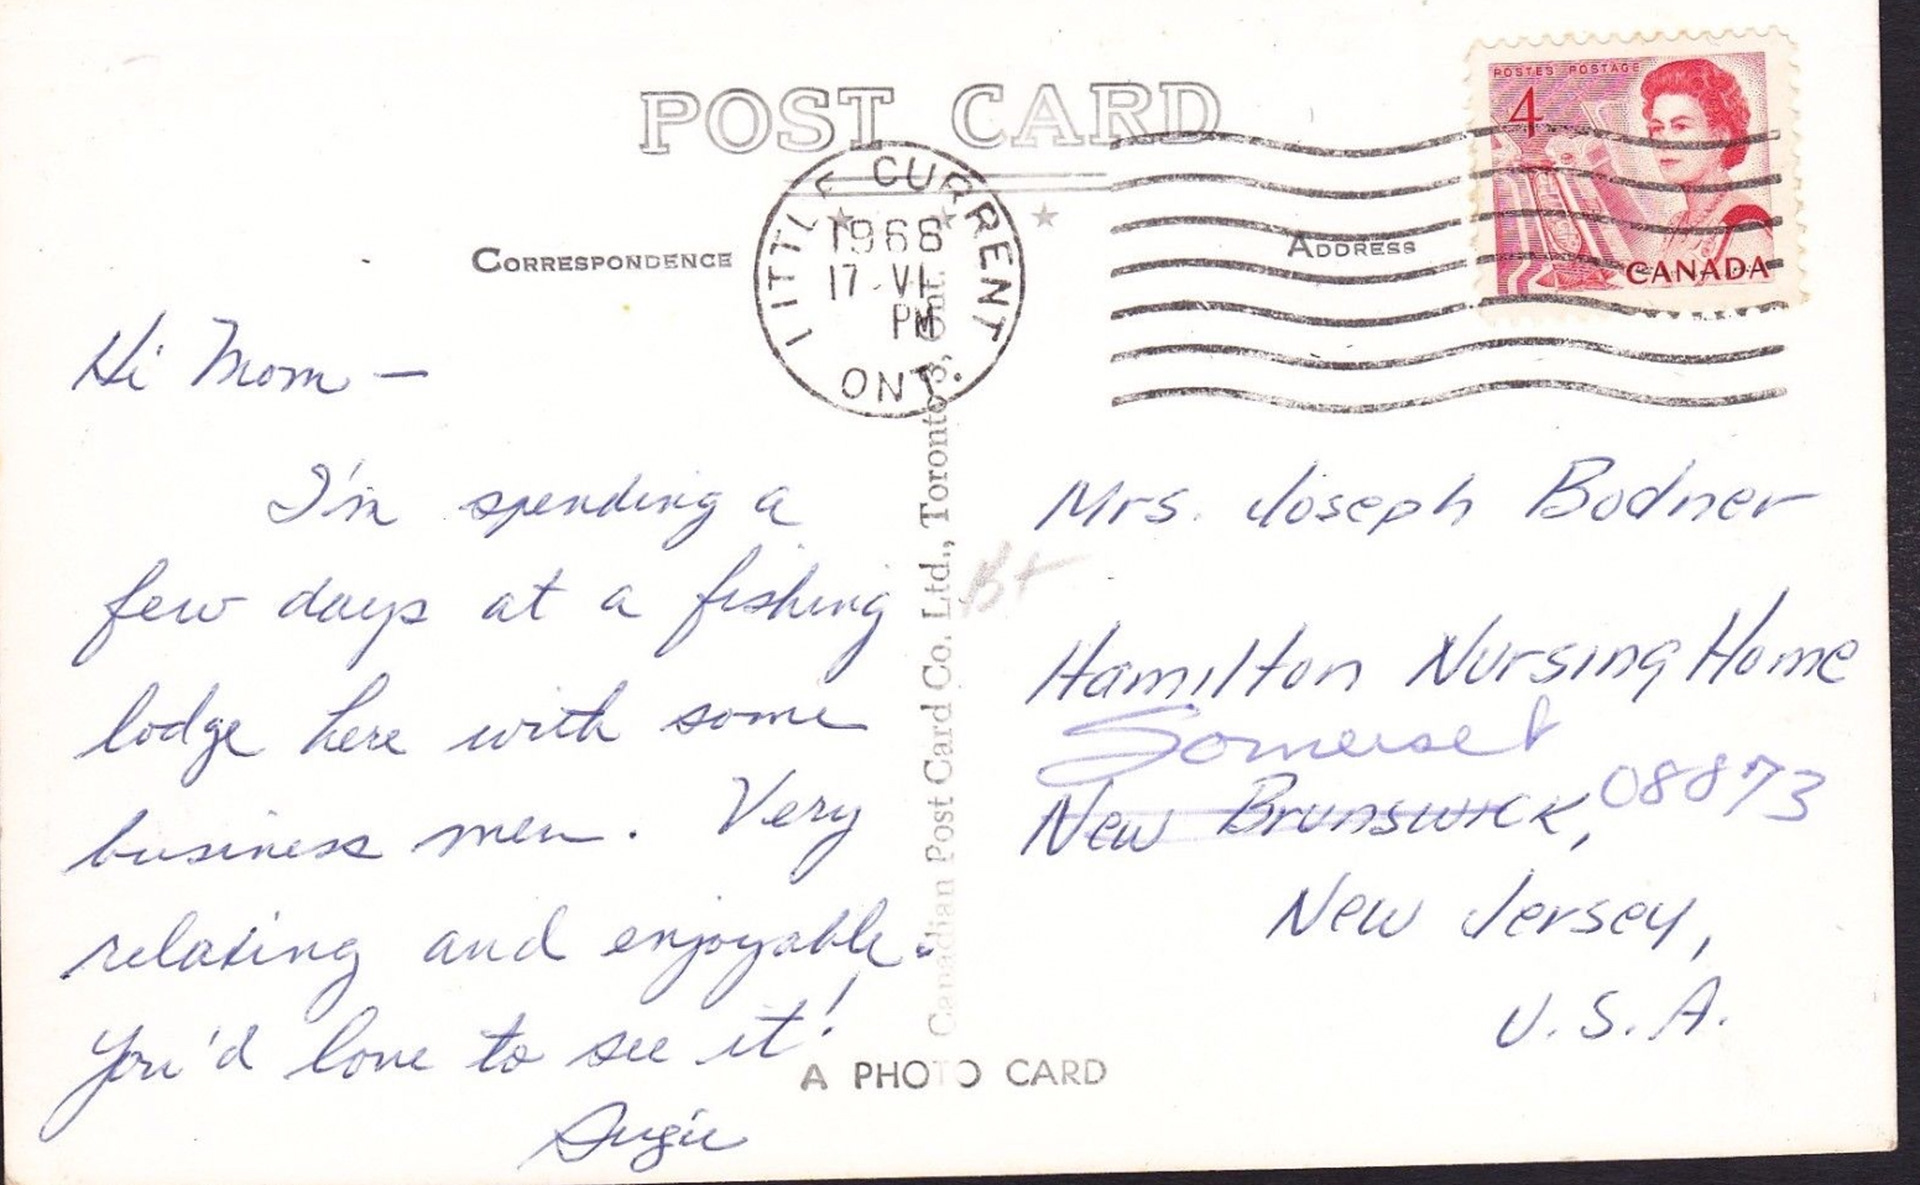 POST CARD
LITTLE CURRENT
1968
17-VI
PM
ONT.
POSTES POSTAGE
4
CANADA
CORRESPONDENCE
ADDRESS
Hi Mom —
I'm spending a
few days at a fishing
lodge here with some
business men. Very
relaxing and enjoyable.
You'd love to see it!
Suzie
Canadian Post Card Co. Ltd., Toronto 3, Ont.
Mrs. Joseph Bodner
Hamilton Nursing Home
Somerset
New Brunswick, 08873
New Jersey,
U.S.A.
A PHOTO CARD